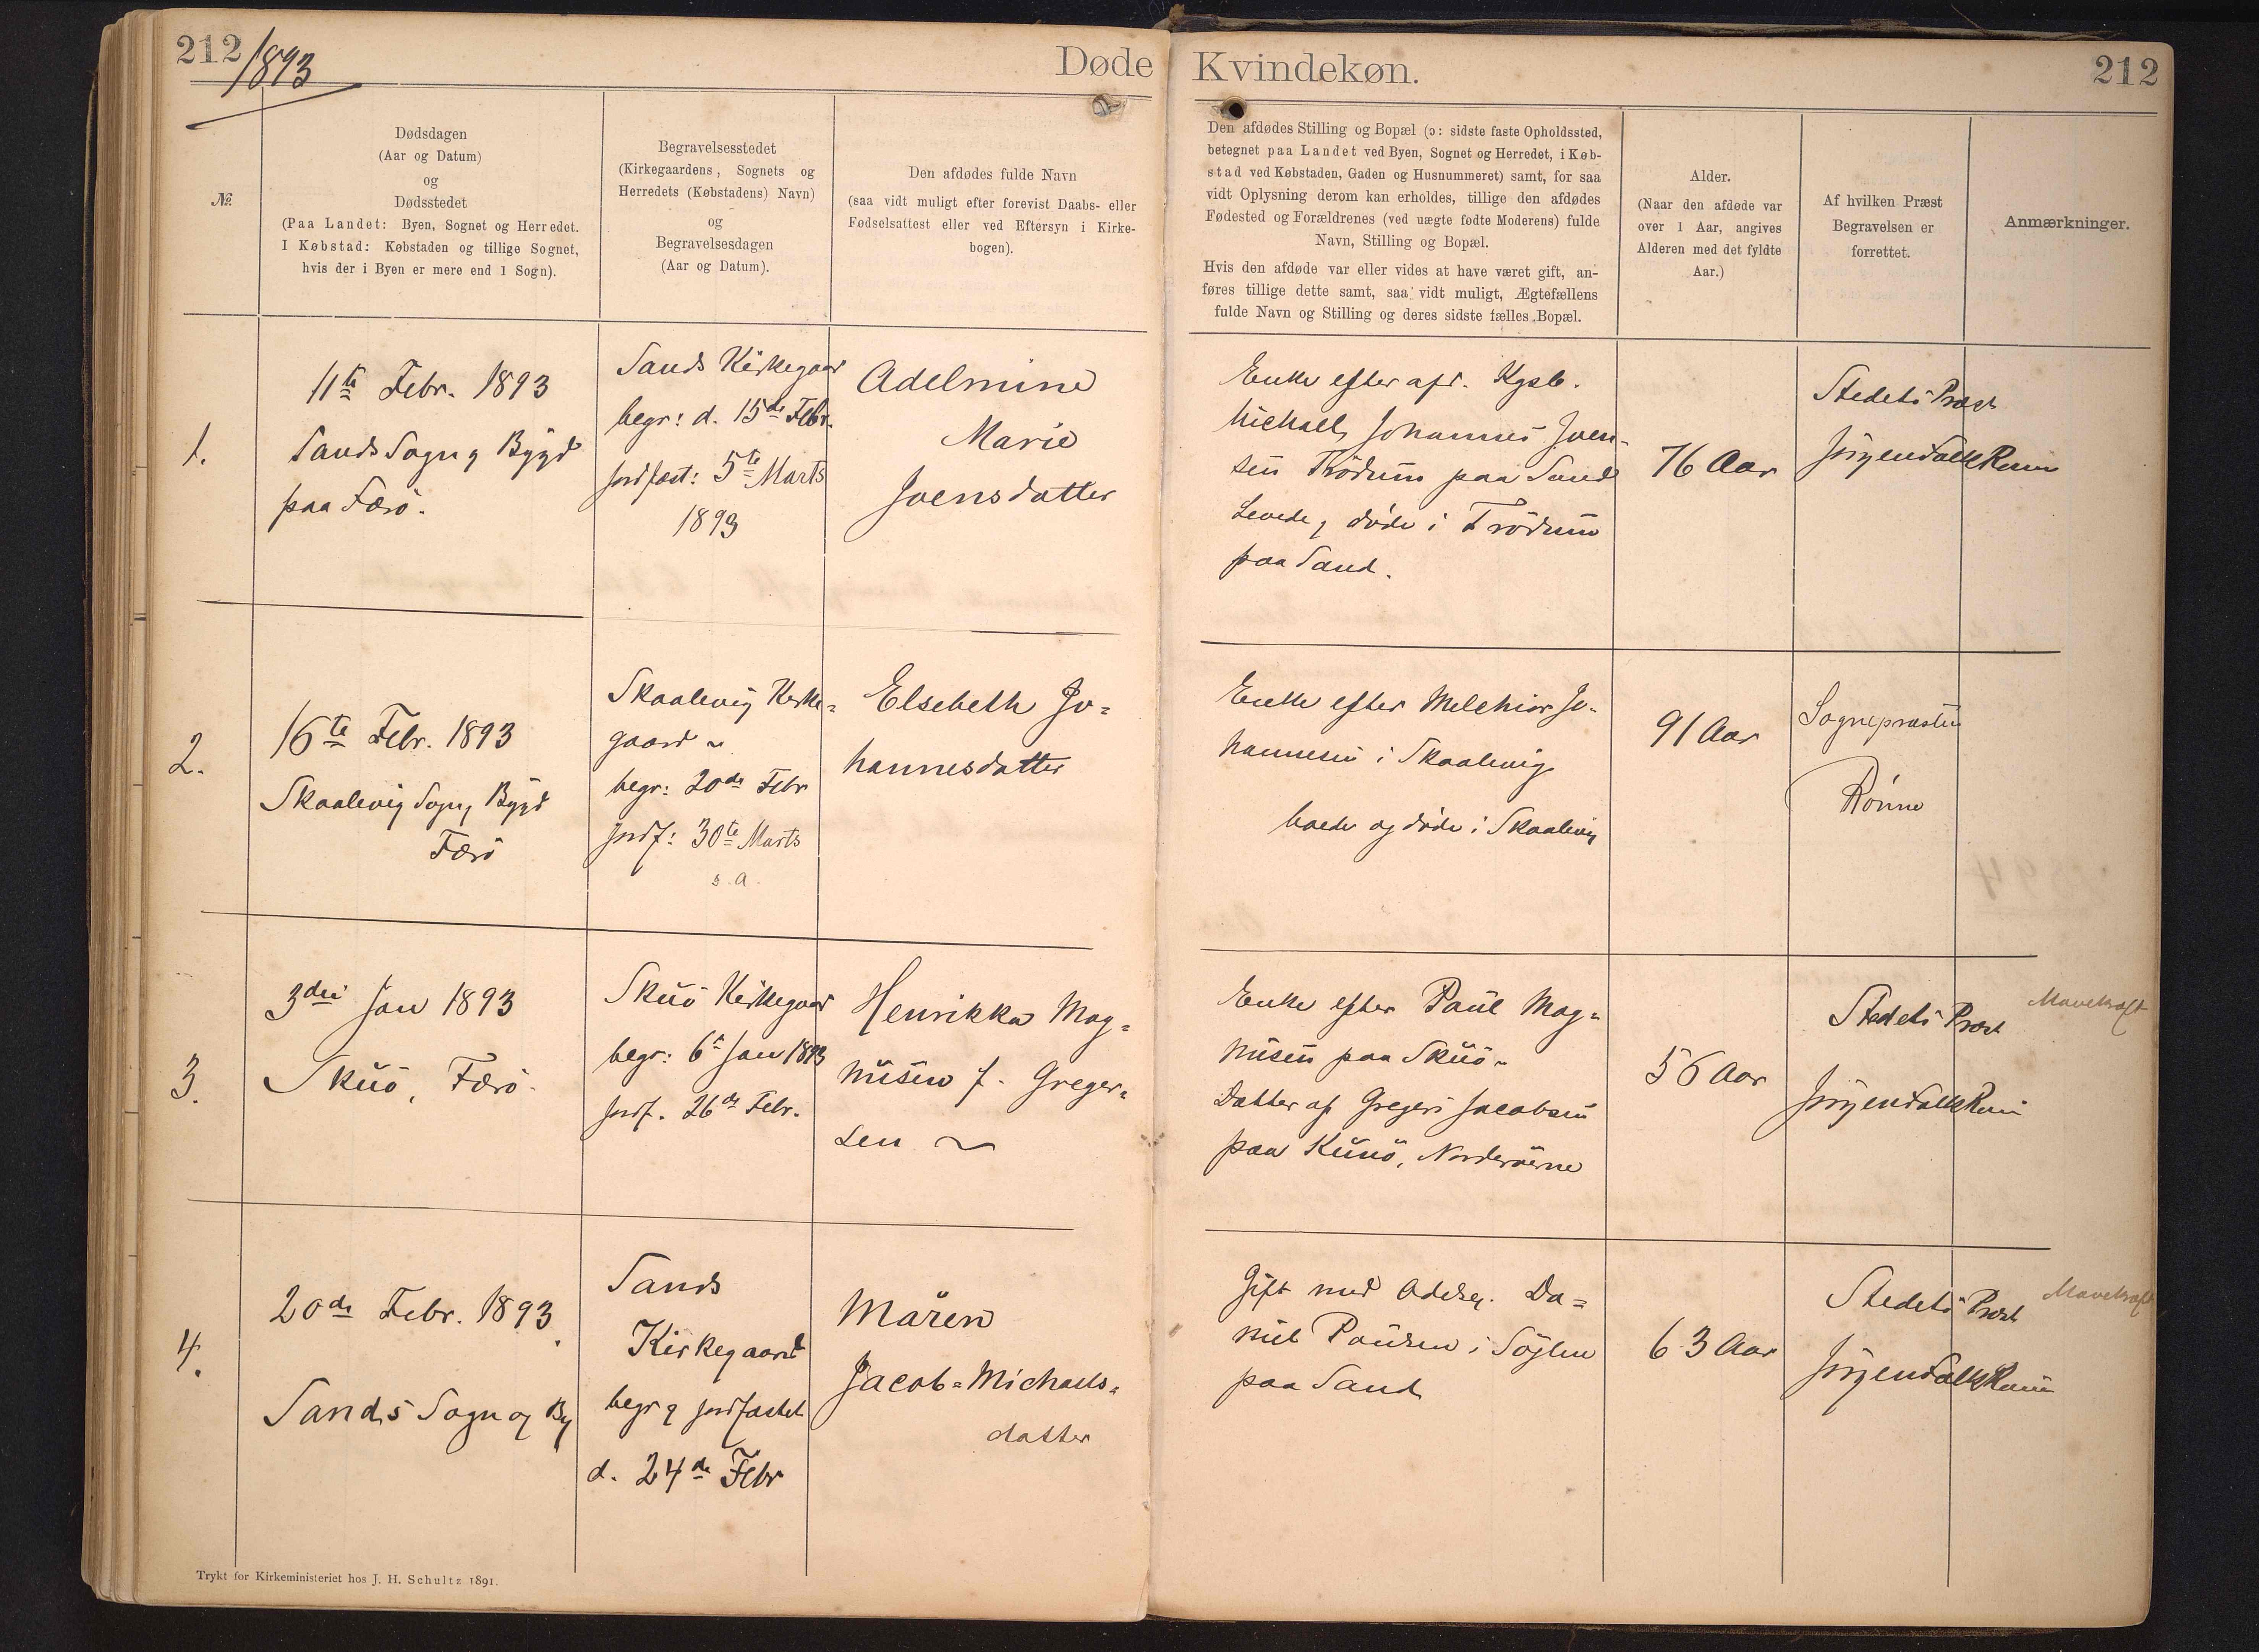 212
1893
Døde
Kvindekøn.
212
№.
Dødsdagen
(Aar og Datum)
og
Dødsstedet
(Paa Landet: Byen, Sognet og Herredet.
I Købstad: Købstaden og tillige Sognet,
hvis der i Byen er mere end 1 Sogn).
Begravelsesstedet
(Kirkegaardens, Sognets og
Herredets (Købstadens) Navn)
og
Begravelsesdagen
(Aar og Datum).
Den afdødes fulde Navn
(saa vidt muligt efter forevist Daabs- eller
Fødselsattest eller ved Eftersyn i Kirke-
bogen).
Den afdødes Stilling og Bopæl (ɔ: sidste faste Opholdssted,
betegnet paa Landet ved Byen, Sognet og Herredet, i Køb-
stad ved Købstaden, Gaden og Husnummeret) samt, for saa
vidt Oplysning derom kan erholdes, tillige den afdødes
Fødested og Forældrenes (ved uægte fødte Moderens) fulde
Navn, Stilling og Bopæl.
Hvis den afdøde var eller vides at have været gift, an-
føres tillige dette samt, saa vidt muligt, Ægtefællens
fulde Navn og Stilling og deres sidste fælles Bopæl.
Alder.
(Naar den afdøde var
over 1 Aar, angives
Alderen med det fyldte
Aar.)
Af hvilken Præst
Begravelsen er
forrettet.
Anmærkninger.
1.
11te Febr. 1893
Sands Sogn og Bygd
paa Færø.
Sands Kirkegaar
begr: d. 15de Febr.
jordfæst: 5te Marts
1893
Adelmine
Marie
Joensdatter
Enke efter afd. Kgsb.
Michael Johannes Joen-
sen Trödum paa Sand
Levede og döde i Trödum
paa Sand.
76 Aar
Stedets Præst
Jörgen Falk Rønne
2.
16te Febr. 1893
Skaalevig Sogn og Bygd
Færö
Skaalevig Kirke=
gaard
begr: 20de Febr
jordf: 30te Marts
s.a.
Elsebeth Jo=
hannesdatter
Enke efter Melchior Jo-
hannesen i Skaalevig
boede og döde i Skaalevig
91 Aar
Sognepræsten
Rönne
3.
3die Jan 1893
Skuö, Færö.
Skuö Kirkegaar
begr: 6te Jan 1893
jordf. 26de Febr.
Henrikka Mag=
nusen f. Greger=
sen
Enke efter Paul Mag=
nusen paa Skuö.
Datter af Gregers Jacobsen
paa Kunö, Norderøerne
56 Aar
Stedets Præst
Jörgen Falk Rønne
Mavekræft
4.
20de Febr. 1893.
Sands Sogn og By
Sands
Kirkegaard
begr og jordfæstet
d. 24de Febr
Maren
Jacob=Michaels=
datter
Gift med Da=
niel Poulsen i Söjlen
paa Sand
63 Aar
Stedets Præst
Jörgen Falk Rønne
Mavekræft
Trykt for Kirkeministeriet hos J. H. Schultz 1891.